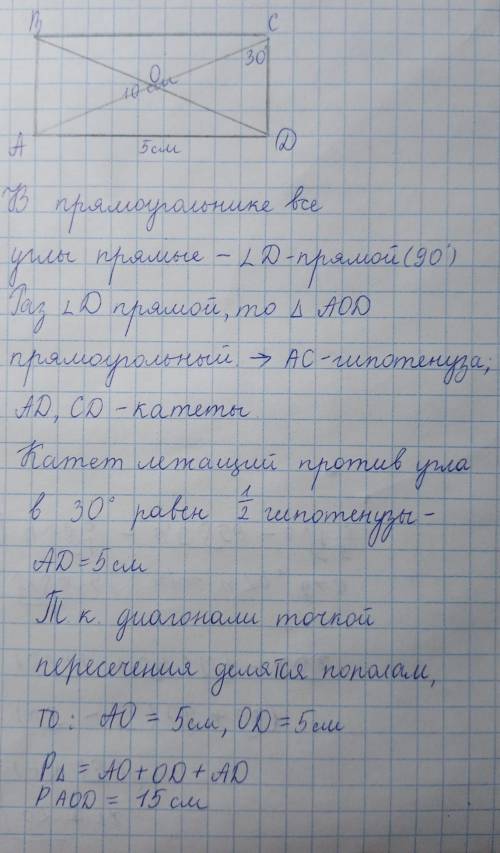 B C
30°
O
10 см
A 5 см D
В прямоугольнике все
углы прямые - ∠D-прямой (90°)
Раз ∠D прямой, то △ AOD
прямоугольный → AC-гипотенуза;
AD, CD - катеты
Катет лежащий против угла
в 30° равен 1/2 гипотенузы -
AD = 5 см
Т к. диагонали точкой
пересечения делятся пополам,
то: AO = 5 см, OD = 5 см
P△ = AO + OD + AD
P AOD = 15 см